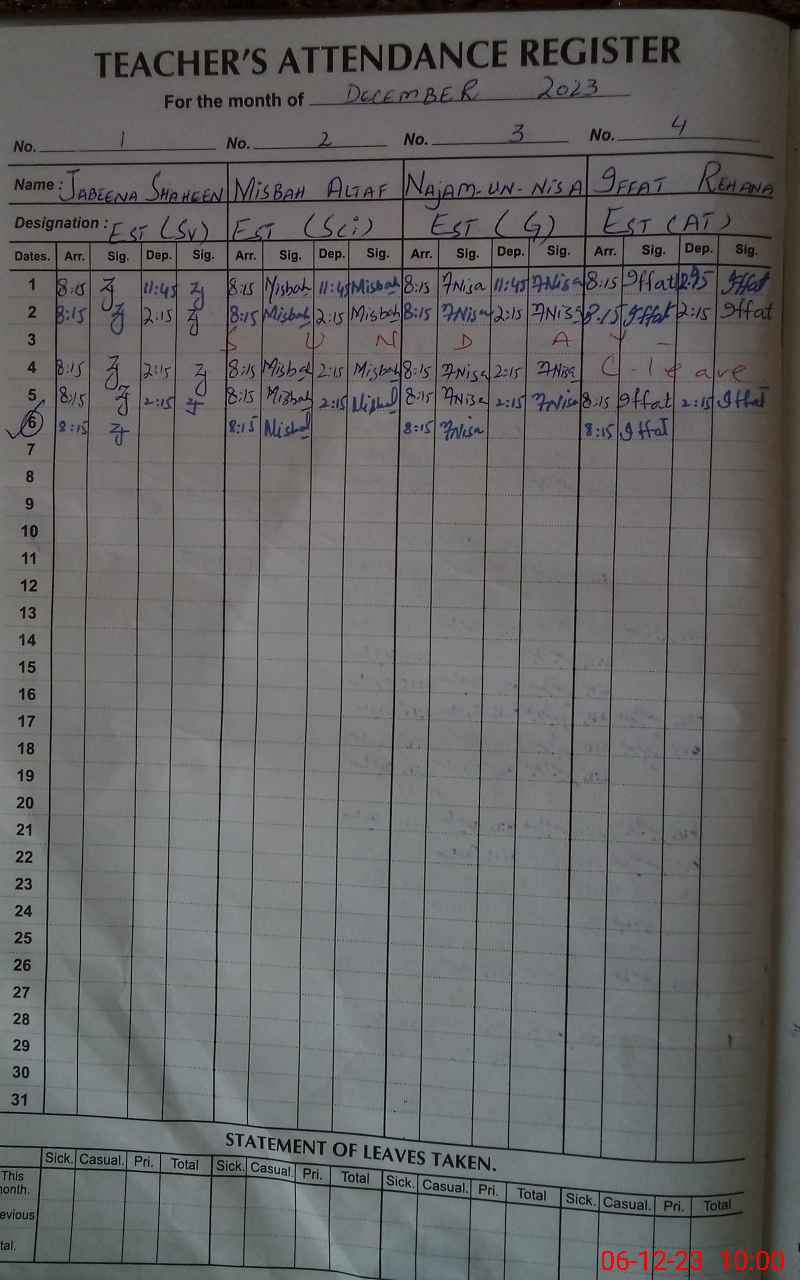 TEACHER'S ATTENDANCE REGISTER
For the month of DECEMBER 2023
No. 1 No. 2 No. 3 No. 4
Name : JABEENA SHAHEEN MISBAH ALTAF NAJAM-UN-NISA IFFAT REHANA
Designation : EST (SV) EST (Sci) EST (G) EST (AT)
Dates. Arr. Sig. Dep. Sig. Arr. Sig. Dep. Sig. Arr. Sig. Dep. Sig. Arr. Sig. Dep. Sig.
1 8:15 11:45 8:15 Misbah 11:45 Misbah 8:15 7Nisa 11:45 7Nisa 8:15 Iffat Iffat
2 8:15 2:15 8:15 Misbah 2:15 Misbah 8:15 7Nisa 2:15 7Nisa 8:15 Iffat 2:15 Iffat
3 S U N D A Y -
4 8:15 2:15 8:15 Misbah 2:15 Misbah 8:15 7Nisa 2:15 7Nisa C-leave
5 8:15 2:15 8:15 Misbah 2:15 Misbah 8:15 7Nisa 2:15 7Nisa 8:15 Iffat 2:15 Iffat
6 8:15 8:15 Misbah 8:15 7Nisa 8:15 Iffat
7
8
9
10
11
12
13
14
15
16
17
18
19
20
21
22
23
24
25
26
27
28
29
30
31
STATEMENT OF LEAVES TAKEN.
Sick. Casual. Pri. Total Sick. Casual. Pri. Total Sick. Casual. Pri. Total Sick. Casual. Pri. Total
This
onth.
evious
tal.
06-12-23 10:00